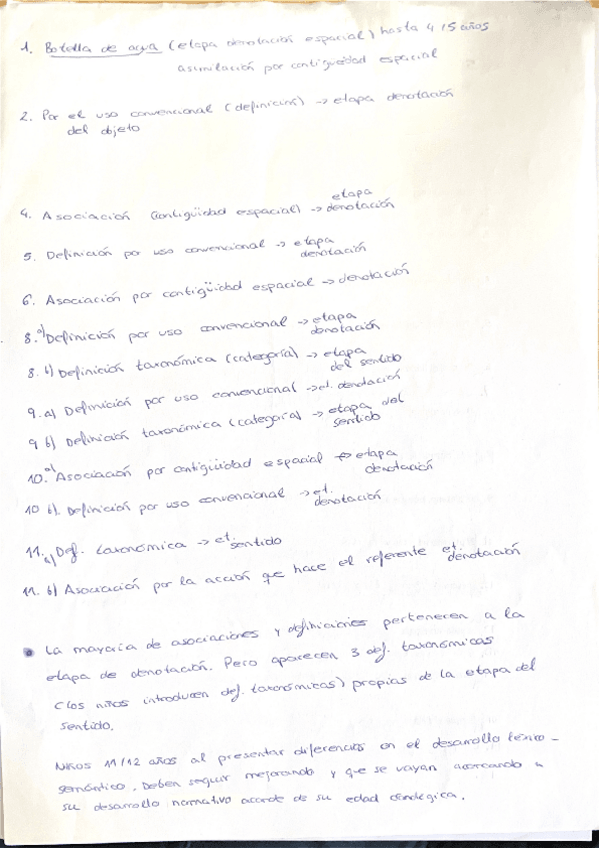 1. Botella de agua (etapa denotación espacial) hasta 4/5 años
asimilación por contigüedad espacial
2. Por el uso convencional (definición) -> etapa denotación
del objeto
4. Asociación (contigüidad espacial) -> etapa denotación
5. Definición por uso convencional -> etapa denotación
6. Asociación por contigüidad espacial -> denotación
8. a) Definición por uso convencional -> etapa denotación
8. b) Definición taxonómica (categoría) -> etapa del sentido
9. a) Definición por uso convencional -> et. denotación
9 b) Definición taxonómica (categoría) -> etapa del sentido
10. a) Asociación por contigüidad espacial -> etapa denotación
10 b). Definición por uso convencional -> et. denotación
11. a) Def. taxonómica -> et. sentido
11. b) Asociación por la acción que hace el referente et. denotación
• La mayoría de asociaciones y definiciones pertenecen a la
etapa de denotación. Pero aparecen 3 def. taxonómicas
(los niños introducen def. taxonómicas) propias de la etapa del
sentido.
Niños 11/12 años al presentar diferencias en el desarrollo léxico-
semántico. Deben seguir mejorando y que se vayan acercando a
su desarrollo normativo acorde de su edad